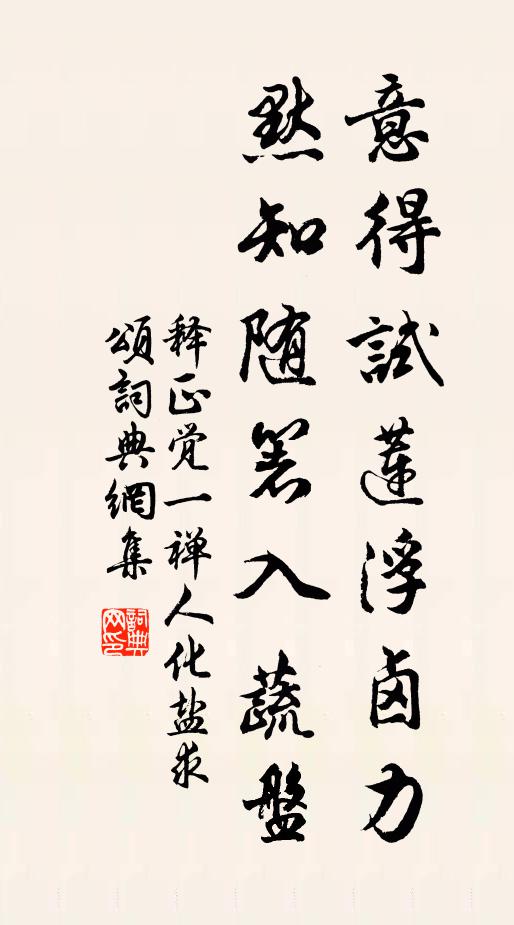 意得試蓮浮卤力
黙知随箸入蔬盤
释正觉一禅人化盐求
頌詞典網集
詞典
网印